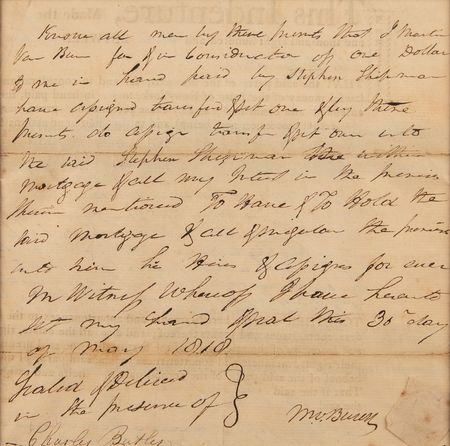 Know all men by these presents that I Martin
Van Buren for & in consideration of one Dollar
to me in hand paid by Stephen Shipman
have assigned transferd & set over & by these
presents do assign transfer & set over unto
the said Stephen Shipman the within
Mortgage & all my Interest in the premises
therein mentioned To Have & To Hold the
said Mortgage & all & singular the premises
unto him his Heirs & assigns for ever
In Witness Whereof I have hereunto
set my hand & seal this 30th day
of May 1818
Sealed & Delivered
in the presence of
M V Buren
Charles Butler